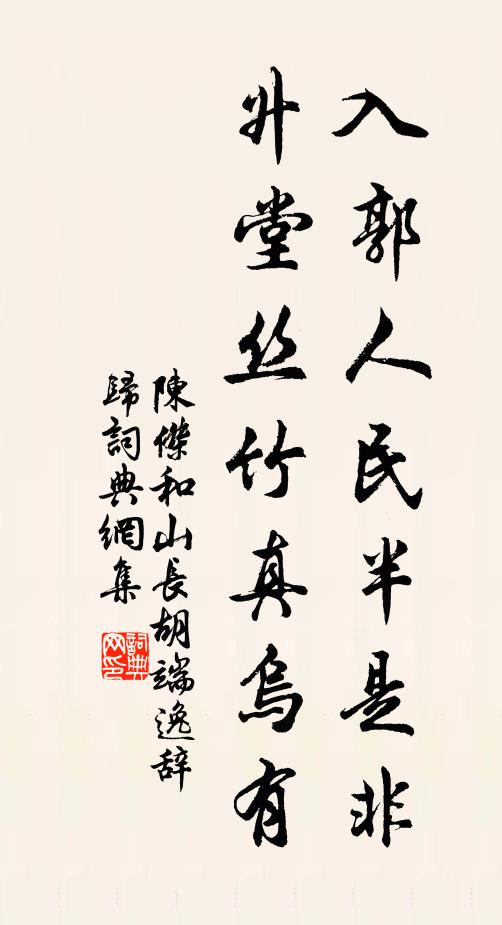 入郭人民半是非
升堂丝竹真烏有
陳傑和山長胡端逸辞
歸詞典網集
詞典网印